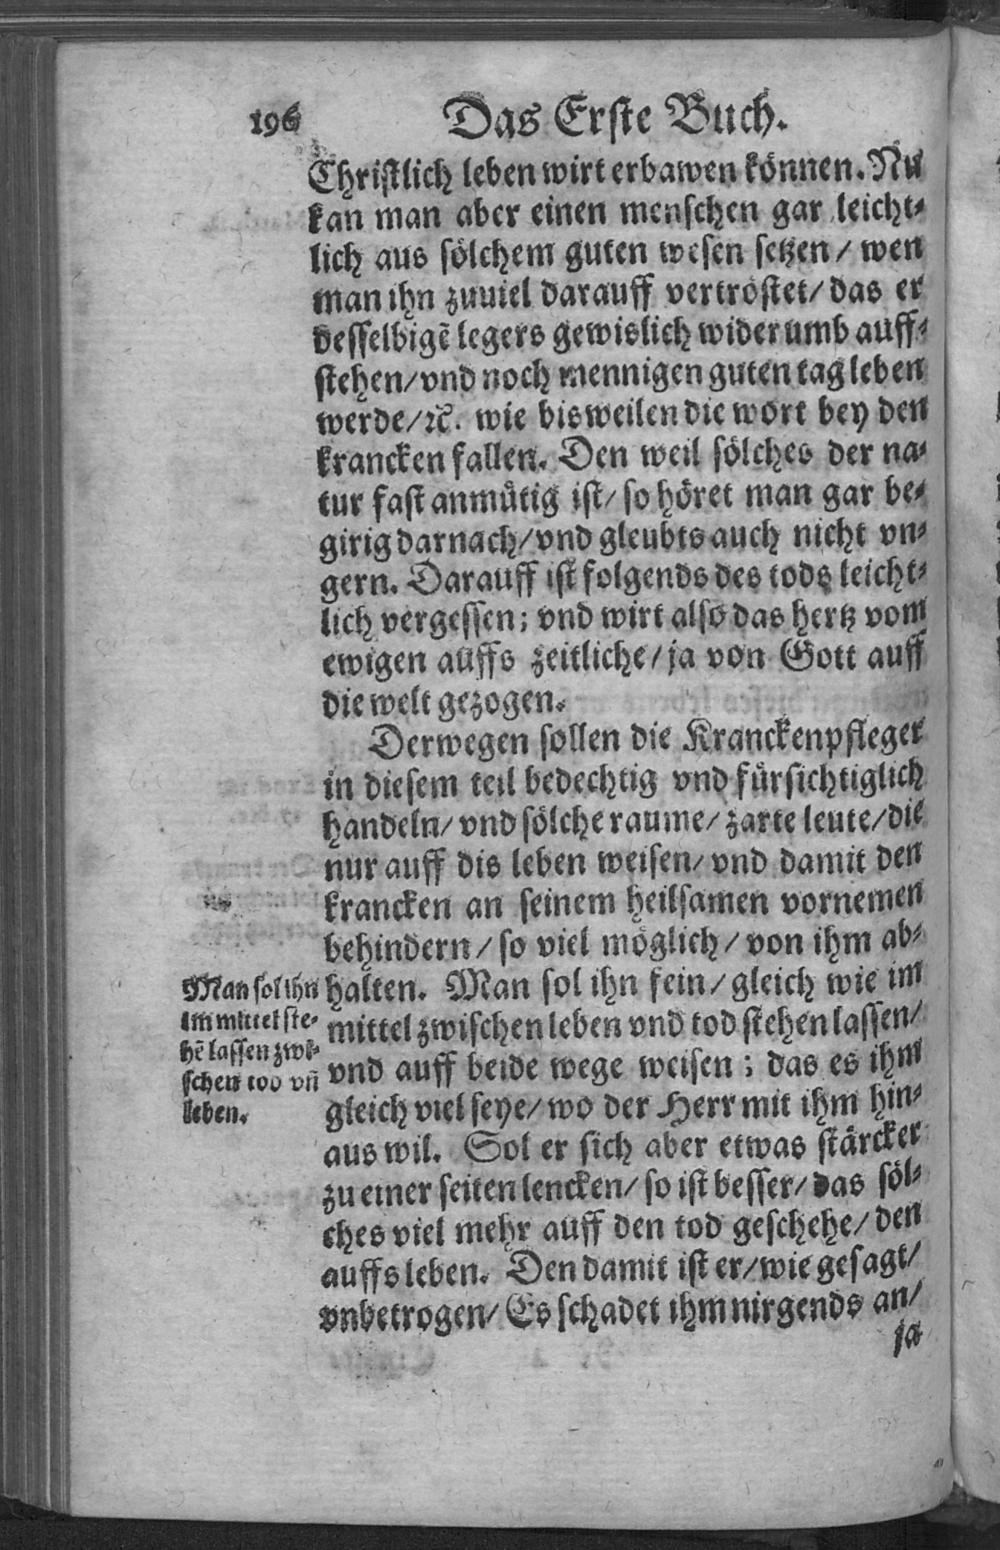 196 Das Erste Buch.
Christlich leben wirt erbawen können. Nu
kan man aber einen menschen gar leicht⸗
lich aus sölchem guten wesen setzen / wen
man ihn zuuiel darauff vertröstet/ das er
desselbigē legers gewislich widerumb auff⸗
stehen/ vnd noch mennigen guten tag leben
werde/ ꝛc. wie bisweilen die wort bey den
krancken fallen. Den weil sölches der na⸗
tur fast anmütig ist/ so höret man gar be⸗
girig darnach/ vnd gleubts auch nicht vn⸗
gern. Darauff ist folgends des tods leicht⸗
lich vergessen; vnd wirt also das hertz vom
ewigen auffs zeitliche/ ja von Gott auff
die welt gezogen.
Derwegen sollen die Kranckenpfleger
in diesem teil bedechtig vnd fürsichtiglich
handeln/ vnd sölche raume/ zarte leute/ die
nur auff dis leben weisen/ vnd damit den
krancken an seinem heilsamen vornemen
behindern / so viel möglich / von ihm ab⸗
halten. Man sol ihn fein/ gleich wie im
mittel zwischen leben vnd tod stehen lassen/
vnd auff beide wege weisen; das es ihm
gleich viel seye/ wo der Herr mit ihm hin⸗
aus wil. Sol er sich aber etwas stärcker
zu einer seiten lencken/ so ist besser/ das söl⸗
ches viel mehr auff den tod geschehe/ den
auffs leben. Den damit ist er/ wie gesagt/
vnbetrogen/ Es schadet ihm nirgends an/
ja
Man sol ihn
im mittel ste⸗
hē lassen zwi⸗
schen tod vn̄
leben.